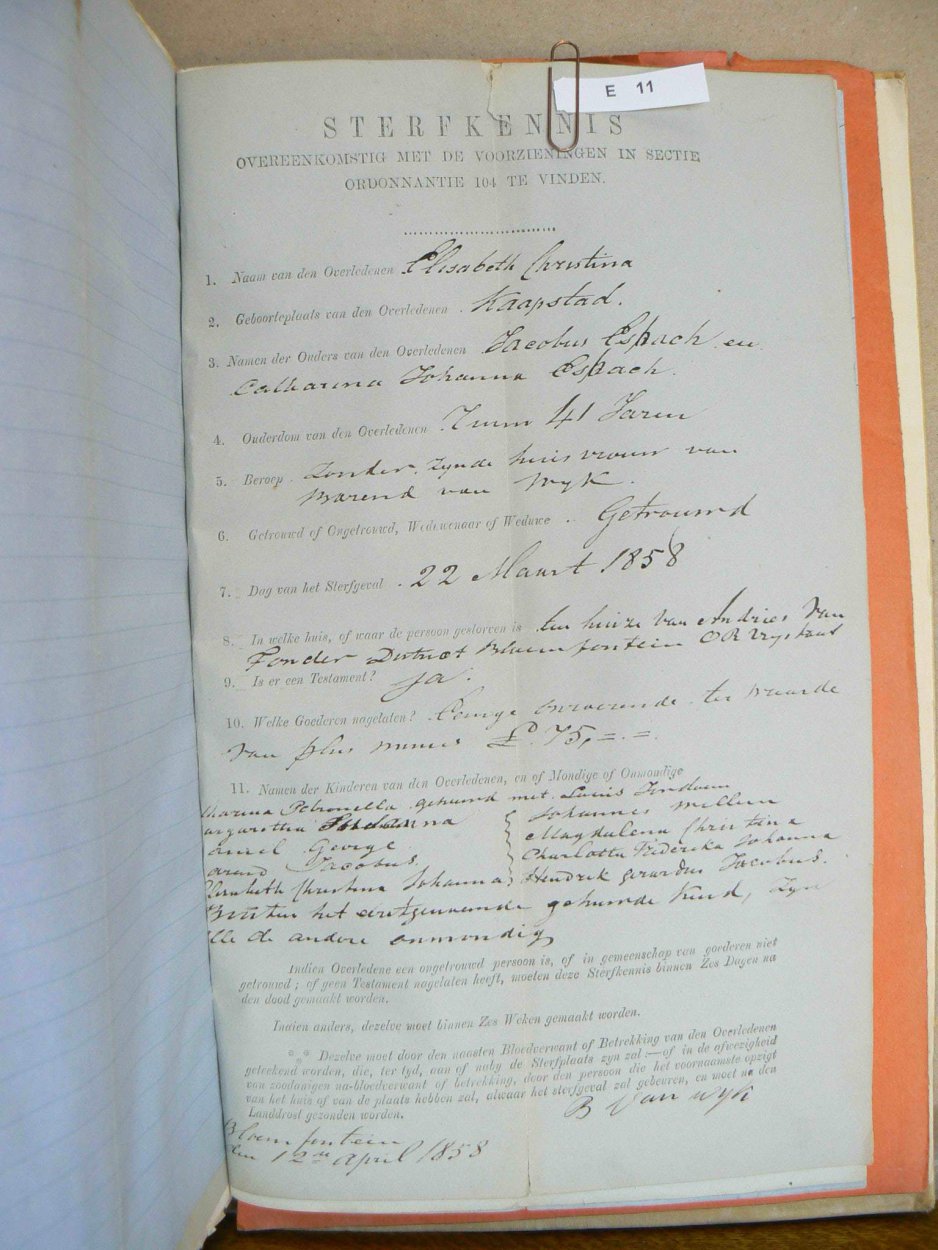 E 11
STERFKENNIS
OVEREENKOMSTIG MET DE VOORZIENINGEN IN SECTIE
ORDONNANTIE 104 TE VINDEN.
1. Naam van den Overledenen Elisabeth Christina
2. Geboorteplaats van den Overledenen Kaapstad.
3. Namen der Ouders van den Overledenen Jacobus Espach en
Catharina Johanna Espach.
4. Ouderdom van den Overledenen Ruim 41 Jaren
5. Beroep Zonder, zynde huisvrouw van
Barend van Wyk.
6. Getrouwd of Ongetrouwd, Wedewenaar of Weduwe Getrouwd
7. Dag van het Sterfgeval 22 Maart 1858
8. In welke huis, of waar de persoon gestorven is ten huize van Andries van
Tonder District Bloemfontein O R Vrystaat
9. Is er een Testament? Ja.
10. Welke Goederen nagelaten? Eenige ter waarde
van plus minus £ 75,=.=.
11. Namen der Kinderen van den Overledenen, en of Mondige of Onmondige
tharina Petronella gehuwd met Louis
argaretha Johannes Willem
George Magdalena Christina
arend Jacobus. Charlotta Frederika Johanna
Elisabeth Christina Johanna Hendrik Gerardus Jacobus.
Buiten het eerstgenoemde gehuwde kind, zyn
lle de andere onmondig
Indien Overledene een ongetrouwd persoon is, of in gemeenschap van goederen niet
getrouwd; of geen Testament nagelaten heeft, moeten deze Sterfkennis binnen Zes Dagen na
den dood gemaakt worden.
Indien anders, dezelve moet binnen Zes Weken gemaakt worden.
*** Dezelve moet door den naasten Bloedverwant of Betrekking van den Overledenen
geteekend worden, die, ter tyd, aan of naby de Sterfplaats zyn zal:—of in de afwezigheid
van zoodanigen na-bloedverwant of betrekking, door den persoon die het voornaamste opzigt
van het huis of van de plaats hebben zal, alwaar het sterfgeval zal gebeuren, en moet na den
Landdrost gezonden worden.
B van Wyk
Bloemfontein
den 12de April 1858